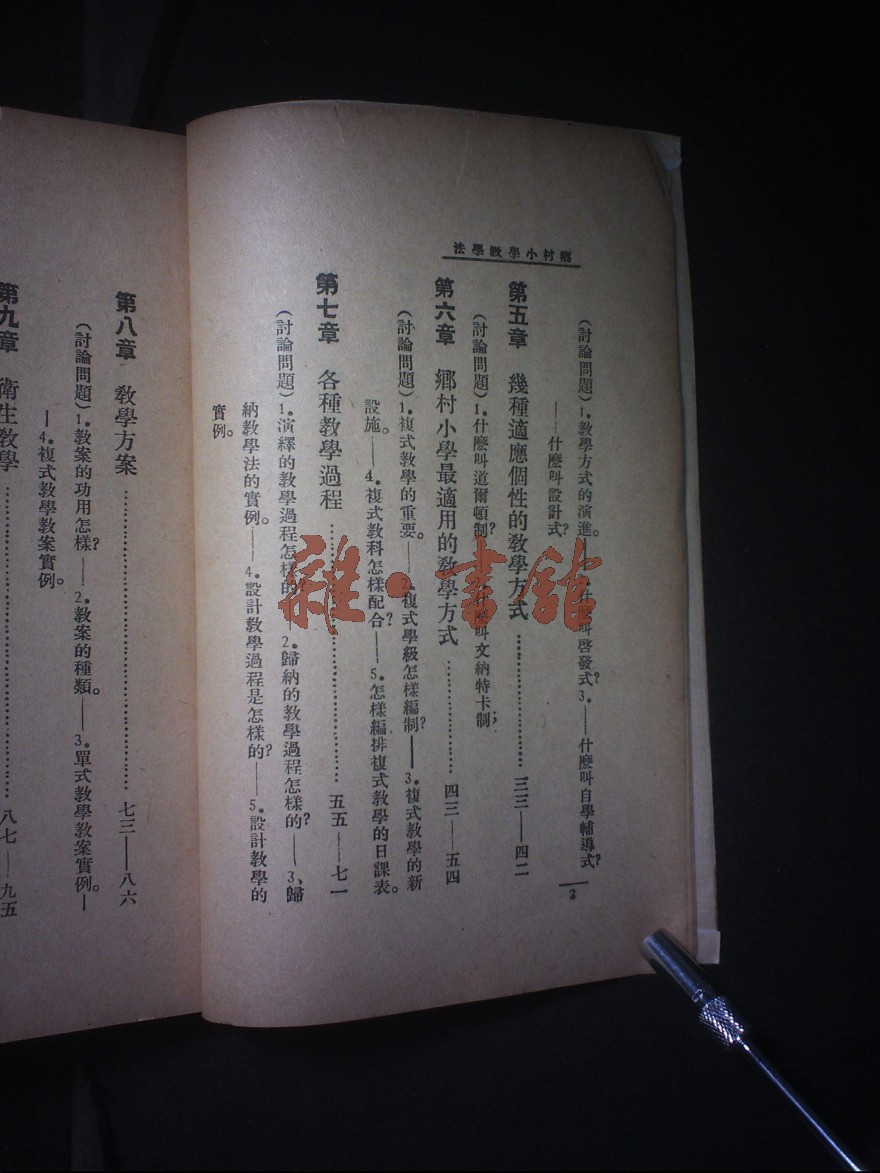 鄉村小學教學法
(討論問題)1.教學方式的演進。什麼叫啓發式?3.——什麼叫自學輔導式?
——什麼叫設計式?
第五章 幾種適應個性的教學方式……………三三——四二
(討論問題)1.什麼叫道爾頓制?什麼叫文納特卡制;
第六章 鄉村小學最適用的教學方式……………四三——五四
(討論問題)1.複式教學的重要。——2.複式學級怎樣編制?——3.複式教學的新
設施。——4.複式教科怎樣配合?——5.怎樣編排複式教學的日課表。
第七章 各種教學過程……………五五——七一
(討論問題)1.演繹的教學過程怎樣的?——2.歸納的教學過程怎樣的?——3、歸
納教學法的實例。——4.設計教學過程是怎樣的?——5.設計教學的
實例。
2
第八章 教學方案……………七三——八六
(討論問題)1.教案的功用怎樣?——2.教案的種類。——3.單式教學教案實例。—
—4.複式教學教案實例。
第九章 衛生教學……………八七——九五
雜·書館